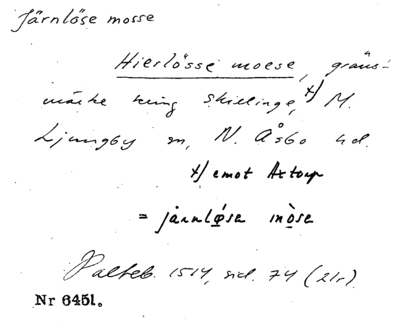 Järnlöse mosse
Hierlösse moese, gräns-
märke kring Skillinge, x) M.
Ljungby sn, N. Åsbo hd.
x) emot Axtorp
= järnlǿsa mòsa
Palteb. 1514, sid. 74 (21r).
Nr 6451.